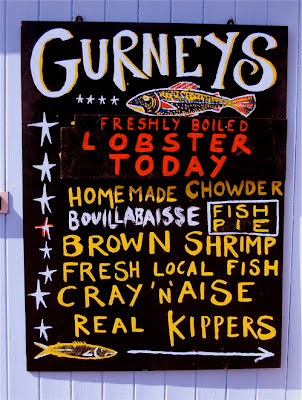 GURNEYS
FRESHLY BOILED
LOBSTER
TODAY
HOMEMADE CHOWDER
BOUILLABAISSE FISH PIE
BROWN SHRIMP
FRESH LOCAL FISH
CRAY 'N' AISE
REAL KIPPERS